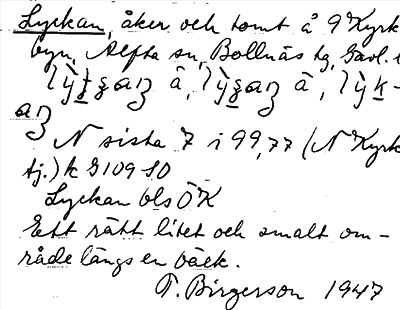 Lyckan, åker och tomt å 9 Kyrk
byn, Alfta sn, Bollnäs hg, Gävl. l
å, å,
N sista 7 i 99,77 (N Kyrk
tj.) k G109 SO
Lyckan bls ÖK
Ett rätt litet och smalt om-
råde längs en bäck.
T. Birgerson 1947